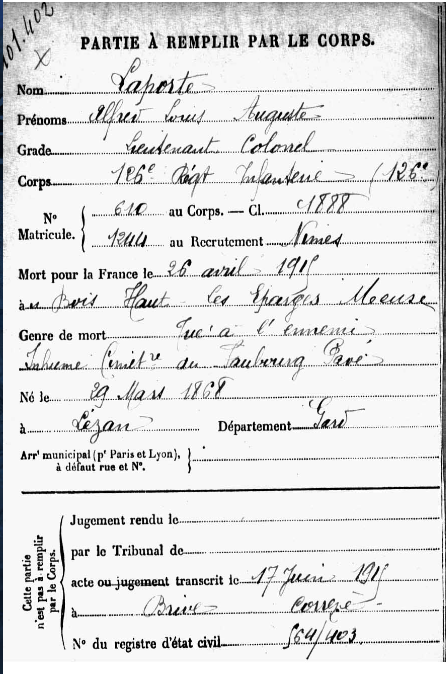 101.402
X
PARTIE À REMPLIR PAR LE CORPS.
Nom Laporte
Prénoms Alfred Louis Auguste
Grade Lieutenant Colonel
Corps 126e Régt Infanterie (126e
N° Matricule. { 610 au Corps. — Cl. 1888
1244 au Recrutement Nimes
Mort pour la France le 26 avril 1915
à au Bois Haut les Eparges Meuse
Genre de mort Tué à l'ennemi
Inhumé Cimetre du Faubourg Pavé
Né le 29 Mars 1868
à Lézan Département Gard
Arrt municipal (pr Paris et Lyon), à défaut rue et N°. }
Cette partie n'est pas à remplir par le Corps. {
Jugement rendu le
par le Tribunal de
acte ou jugement transcrit le 17 Juin 1915
à Brive Corrèze
N° du registre d'état civil 564/403